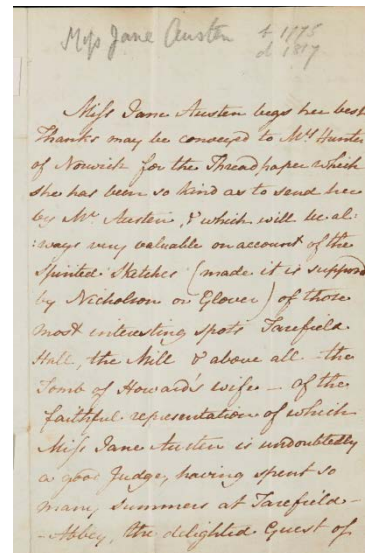 Miss Jane Austen b 1775
d 1817
Miss Jane Austen begs her best
Thanks may be conveyed to Mrs Hunter
of Norwich for the Threadpaper which
she has been so kind as to send her
by Mr Austen, & which will be al:
:ways very valuable on account of the
spirited Sketches (made it is supposed
by Nicholson or Glover) of those
most interesting spots Tarefield
Hall, the Mill & above all the
Tomb of Howard's wife – of the
faithful representation of which
Miss Jane Austen is undoubtedly
a good Judge, having spent so
many summers at Tarefield
-Abbey, the delighted Guest of